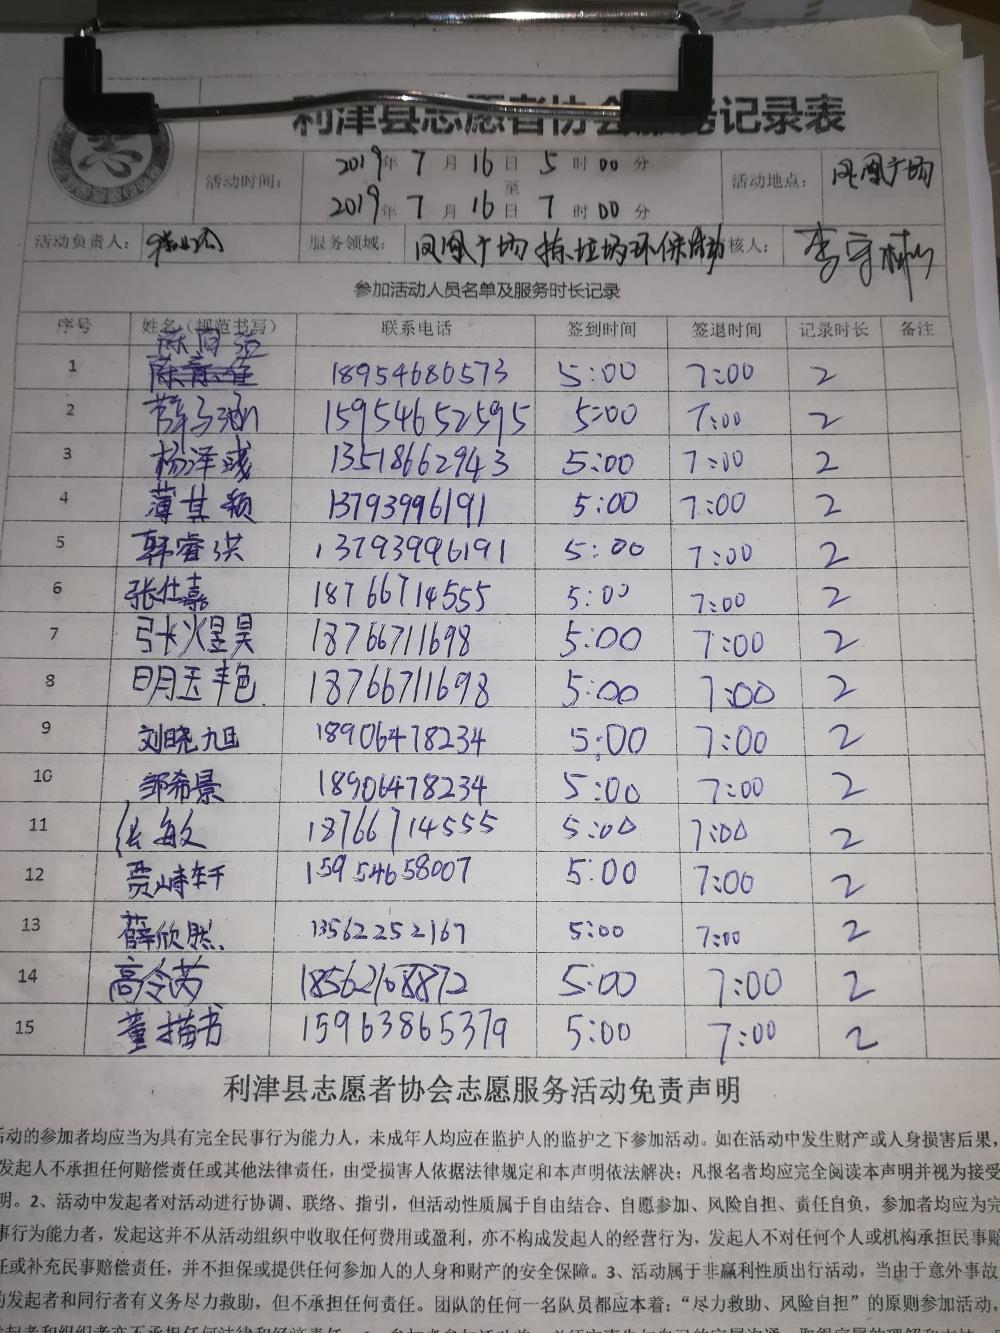 利津县志愿者协会服务记录表
活动时间： 2019年7月16日5时00分
至
2019年7月16日7时00分
活动地点： 凤凰广场
活动负责人： 服务领域： 凤凰广场捡垃圾环保活动 核人： 李守彬
参加活动人员名单及服务时长记录
序号 姓名（规范书写） 联系电话 签到时间 签退时间 记录时长 备注
1 18954686573 5:00 7:00 2
2 15954652595 5:00 7:00 2
3 杨泽彧 13518662943 5:00 7:00 2
4 薄其颖 13793996191 5:00 7:00 2
5 韩睿洪 13793996191 5:00 7:00 2
6 张仕嘉 18766714555 5:00 7:00 2
7 张火昱昊 18766711698 5:00 7:00 2
8 明玉艳 18766711698 5:00 7:00 2
9 刘晓旭 18906478234 5:00 7:00 2
10 邹希景 18906478234 5:00 7:00 2
11 张敏 18766714555 5:00 7:00 2
12 贾峙轩 15954658007 5:00 7:00 2
13 薛欣然 13562252167 5:00 7:00 2
14 高令芮 18562168872 5:00 7:00 2
15 董描书 15963865379 5:00 7:00 2
利津县志愿者协会志愿服务活动免责声明
活动的参加者均应当为具有完全民事行为能力人，未成年人均应在监护人的监护之下参加活动。如在活动中发生财产或人身损害后果，
发起人不承担任何赔偿责任或其他法律责任，由受损害人依据法律规定和本声明依法解决；凡报名者均应完全阅读本声明并视为接受
明。2、活动中发起者对活动进行协调、联络、指引，但活动性质属于自由结合、自愿参加、风险自担、责任自负，参加者均应为完
事行为能力者，发起这并不从活动组织中收取任何费用或盈利，亦不构成发起人的经营行为，发起人不对任何个人或机构承担民事赔
任或补充民事赔偿责任，并不担保或提供任何参加人的人身和财产的安全保障。3、活动属于非赢利性质出行活动，当由于意外事故
的发起者和同行者有义务尽力救助，但不承担任何责任。团队的任何一名队员都应本着：“尽力救助、风险自担”的原则参加活动，